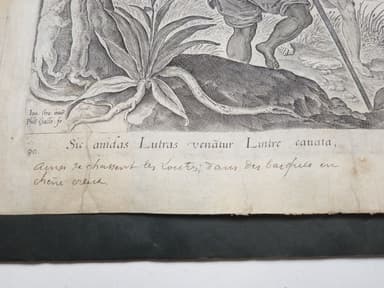 Ioan. Stra. inuē.
Phls Galle. fe.
Sic auidas Lutras venātur Lintre cauata,
90.
Ainsi se chassent les Loutres, dans des barques en
chêne creusé